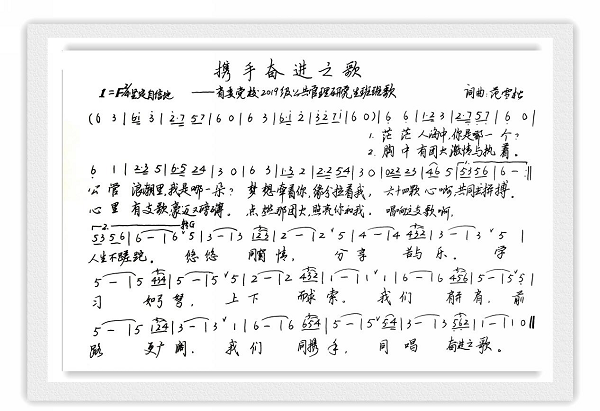 携手奋进之歌
1=F 2/4 坚定自信地 ——省委党校2019级公共管理研究生班班歌 词曲:范
(6 3 | 6 1 3 | 2·7 5 7 | 6 0 | 6 3 | 6 1 2 | 3 2 7 1 | 6 0) | 6 6 | 1·2 3 | 2·7 5 7 | 6 0 |
1. 茫茫人海中,你是哪一个?
2. 胸中有团火激情与执着。
6 1 | 2·3 5 | 6·5 2 4 | 3 0 | 6 3 | 1·3 2 | 2·2 5 4 | 3 0 | 0 2 2 3 | 4 6 5 | 5 3 5 6 | 6 - :|
公管浪潮里,我是哪一朵?梦想牵着你,缘分拉着我,六十四颗心哟,共同去拼搏。
心里有支歌豪迈又磅礴。点燃那团火,照亮你和我,唱响这支歌啊,
2. 转G
5 3 5 6 | 6 - | 6 5 | 3 - | 3 1 2 3 | 2 - | 2 5 | 4 - | 4 4 3 2 | 3 - | 3 5 |
人生不蹉跎。 悠悠 同窗情, 分享 苦与乐。 学
5 - | 5 4 5 4 | 3 - | 3 5 | 2 - | 2 4 3 2 | 1 - | 1 1 | 6 - | 6 4 5 6 | 5 - | 5 5 |
习 如弓弩, 上下 而求索。 我们 有 前
5 - | 5 1 2 4 | 3 - | 3 1 | 6 - | 6 6 5 4 | 5 - | 5 5 4 | 3 - | 3 5 6 2 | 1 - | 1 0 ‖
路 更广阔, 我们 同携手, 同唱 奋进之歌。